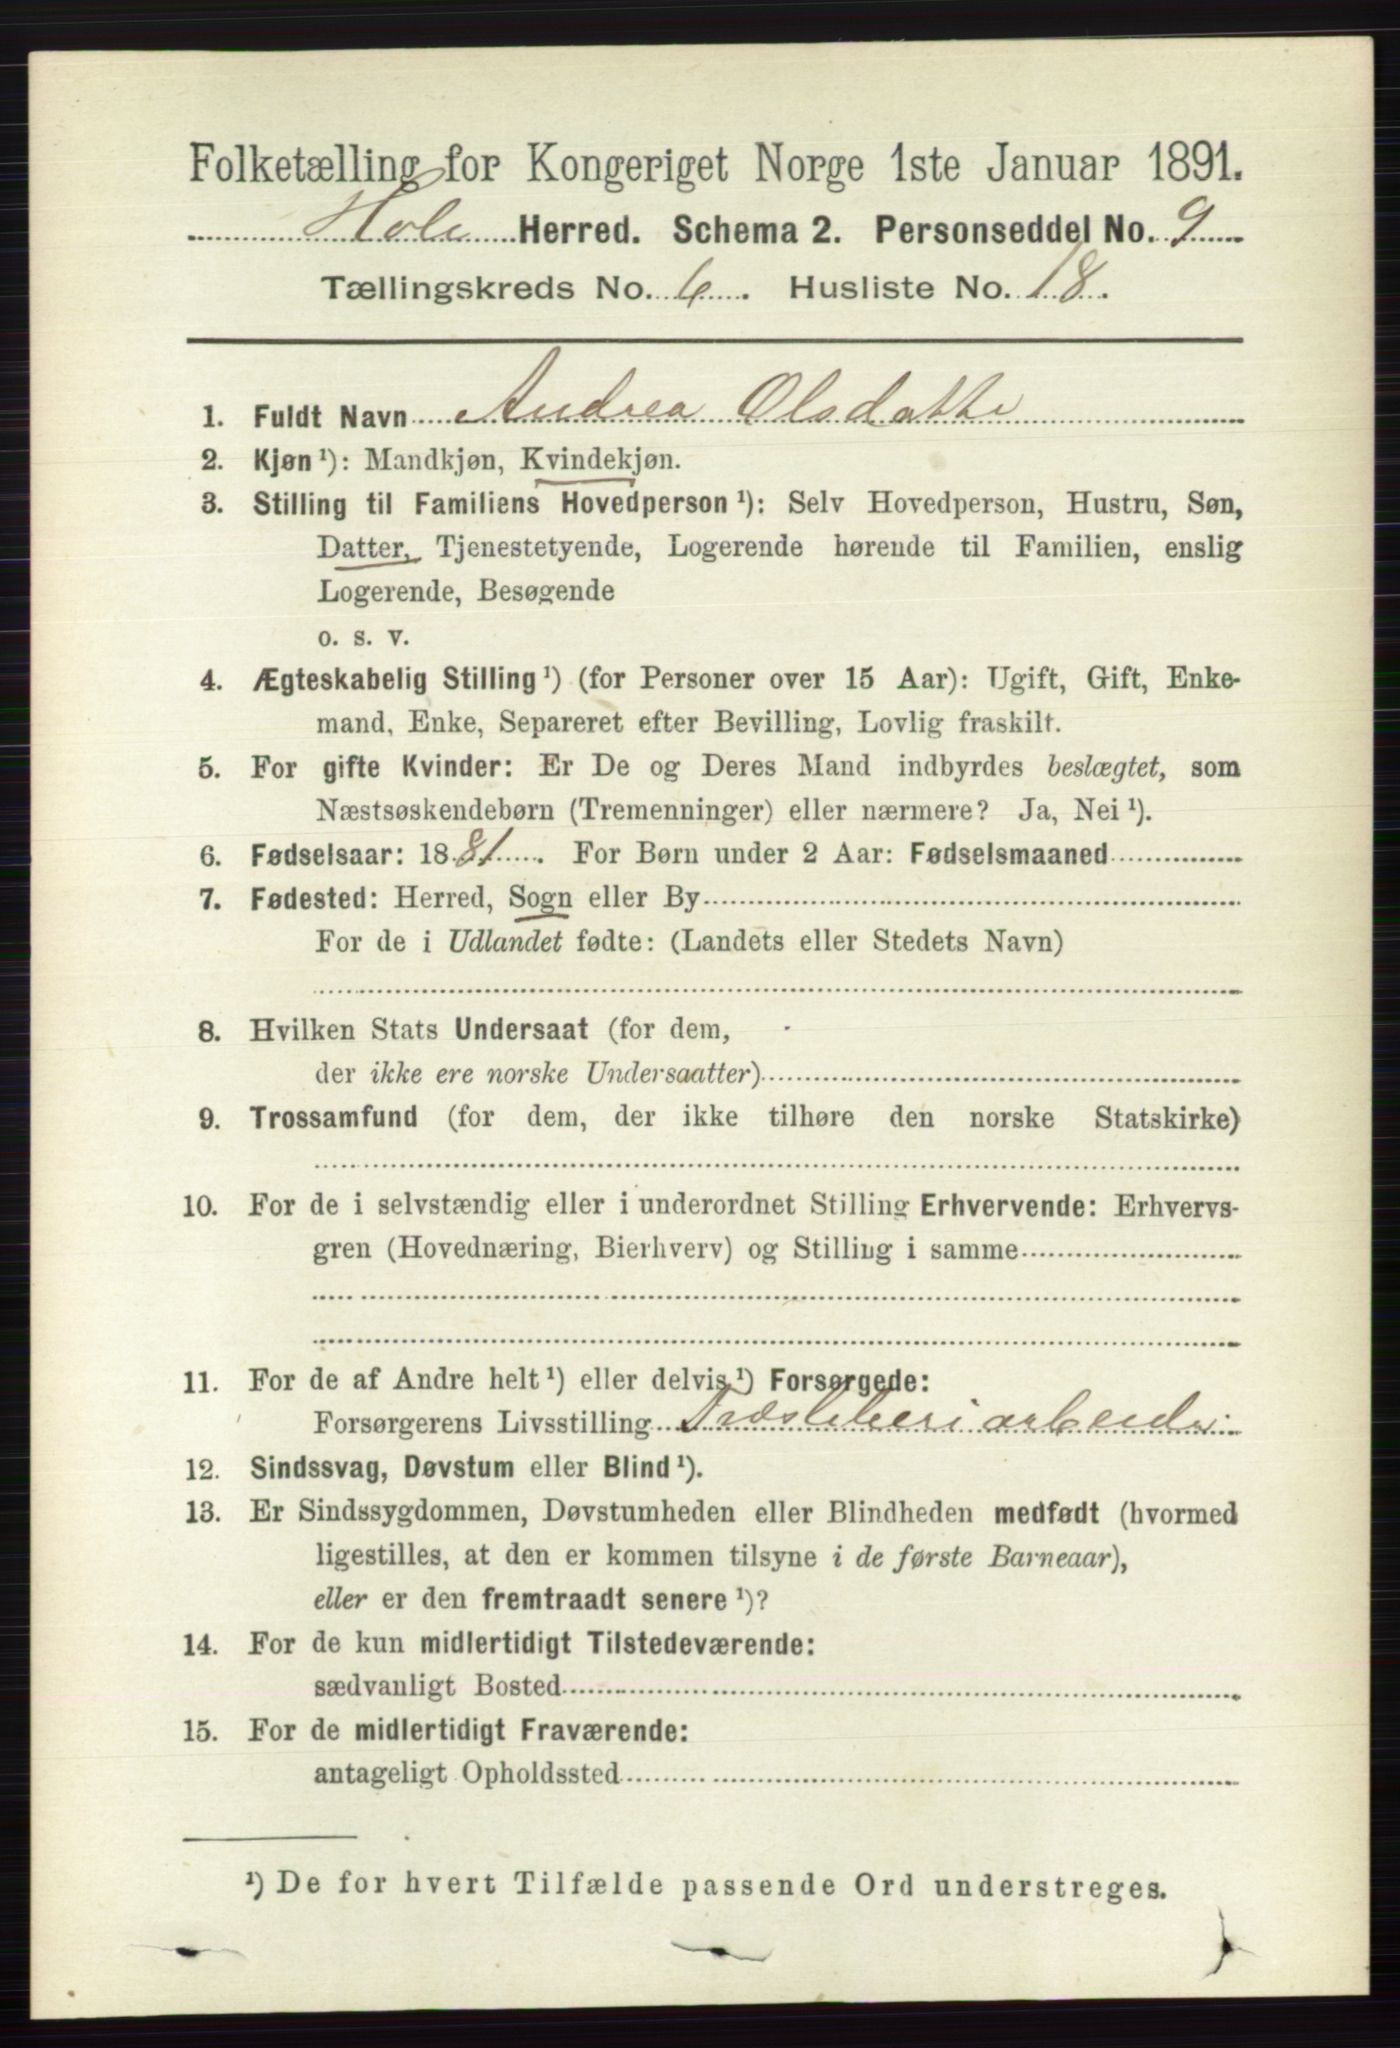 Folketælling for Kongeriget Norge 1ste Januar 1891.
Hole Herred. Schema 2. Personseddel No. 9
Tællingskreds No. 6. Husliste No. 18.
1. Fuldt Navn Andrea Olsdatte
2. Kjøn¹): Mandkjøn, Kvindekjøn.
3. Stilling til Familiens Hovedperson¹): Selv Hovedperson, Hustru, Søn,
Datter, Tjenestetyende, Logerende hørende til Familien, enslig
Logerende, Besøgende
o. s. v.
4. Ægteskabelig Stilling¹) (for Personer over 15 Aar): Ugift, Gift, Enke-
mand, Enke, Separeret efter Bevilling, Lovlig fraskilt.
5. For gifte Kvinder: Er De og Deres Mand indbyrdes beslægtet, som
Næstsøskendebørn (Tremenninger) eller nærmere? Ja, Nei¹).
6. Fødselsaar: 1881. For Børn under 2 Aar: Fødselsmaaned
7. Fødested: Herred, Sogn eller By
For de i Udlandet fødte: (Landets eller Stedets Navn)
8. Hvilken Stats Undersaat (for dem,
der ikke ere norske Undersaatter)
9. Trossamfund (for dem, der ikke tilhøre den norske Statskirke)
10. For de i selvstændig eller i underordnet Stilling Erhvervende: Erhvervs-
gren (Hovednæring, Bierhverv) og Stilling i samme
11. For de af Andre helt¹) eller delvis¹) Forsørgede:
Forsørgerens Livsstilling Træsliberiarbeider
12. Sindssvag, Døvstum eller Blind¹).
13. Er Sindssygdommen, Døvstumheden eller Blindheden medfødt (hvormed
ligestilles, at den er kommen tilsyne i de første Barneaar),
eller er den fremtraadt senere¹)?
14. For de kun midlertidigt Tilstedeværende:
sædvanligt Bosted
15. For de midlertidigt Fraværende:
antageligt Opholdssted
¹) De for hvert Tilfælde passende Ord understreges.